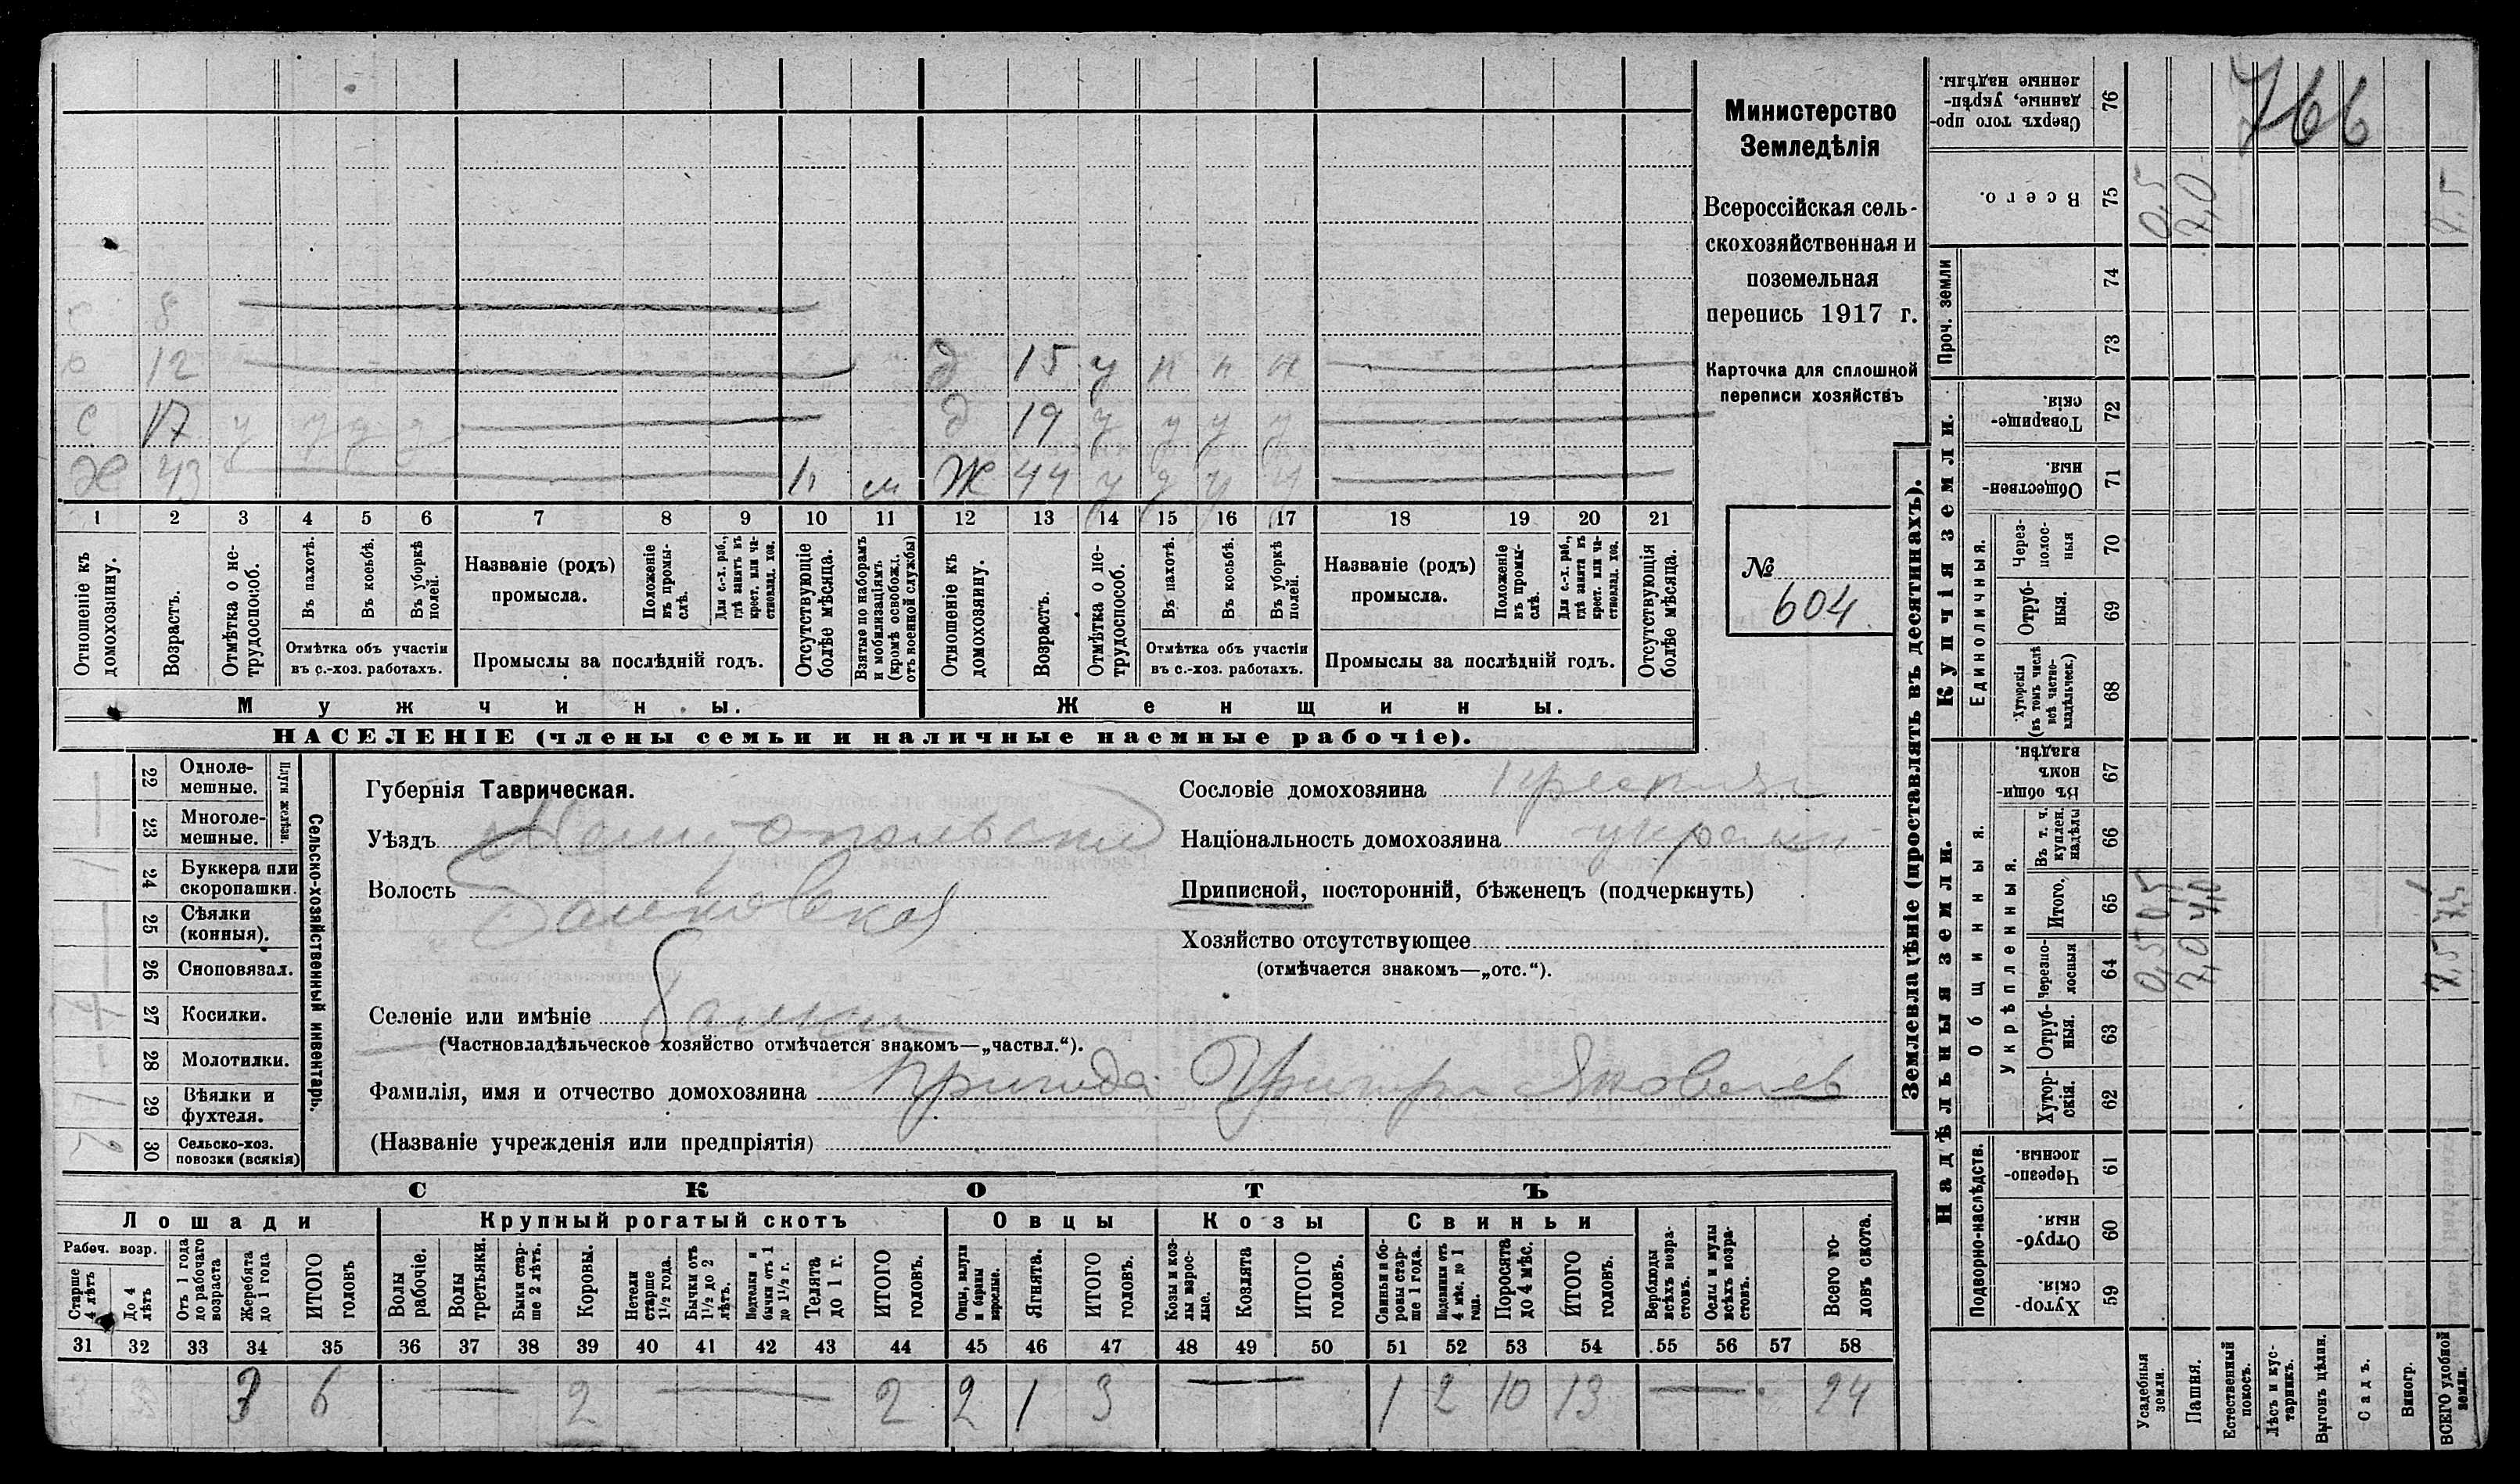 Министерство
Земледѣлія
Всероссійская сель-
скохозяйственная и
поземельная
перепись 1917 г.
Карточка для сплошной
переписи хозяйствъ
№
604
766
с 8
с 12
с 17 у у д д
Х 43 п м
д 15 у п п п
д 19 у у у у
Ж 44 у д у
1 2 3 4 5 6 7 8 9 10 11 12 13 14 15 16 17 18 19 20 21
Отношеніе къ домохозяину.
Возрастъ.
Отмѣтка о не-трудоспособ.
Въ пахотѣ.
Въ косьбѣ.
Въ уборкѣ полей.
Отмѣтка объ участіи
въ с.-хоз. работахъ.
Названіе (родъ)
промысла.
Положеніе въ промы-слѣ.
Для с.-х. раб., гдѣ занятъ въ крест. или ча-стновлад. хоз.
Промыслы за послѣдній годъ.
Отсутствующіе болѣе мѣсяца.
Взятые по наборамъ и мобилизаціямъ (кромѣ освобожд. отъ военной службы)
Отношеніе къ домохозяину.
Возрастъ.
Отмѣтка о не-трудоспособ.
Въ пахотѣ.
Въ косьбѣ.
Въ уборкѣ полей.
Отмѣтка объ участіи
въ с.-хоз. работахъ.
Названіе (родъ)
промысла.
Положеніе въ промы-слѣ.
Для с.-х. раб., гдѣ занята въ крест. или ча-стновлад. хоз.
Промыслы за послѣдній годъ.
Отсутствующія болѣе мѣсяца.
Мужчины.
Женщины.
НАСЕЛЕНІЕ (члены семьи и наличные наемные рабочіе).
Сельско-хозяйственный инвентарь.
Плуги желѣзн.
22 Одноле-мешные.
23 Многоле-мешные. 1
24 Буккера или скоропашки.
25 Сѣялки (конныя).
26 Сноповязал.
27 Косилки. 1
28 Молотилки.
29 Вѣялки и фухтеля. 1
30 Сельско-хоз. повозки (всякія)
Губернія Таврическая.
Уѣздъ Мелитопольскій
Волость Балковская
Селеніе или имѣніе Балки
(Частновладѣльческое хозяйство отмѣчается знакомъ—„частвл.“).
Фамилія, имя и отчество домохозяина Григорій Яковлевъ
(Названіе учрежденія или предпріятія)
Сословіе домохозяина
Національность домохозяина
Приписной, посторонній, бѣженецъ (подчеркнуть)
Хозяйство отсутствующее
(отмѣчается знакомъ—„отс.“).
СКОТЪ
Лошади
Рабоч. возр.
Старше 4 лѣтъ
До 4 лѣтъ
Отъ 1 года до рабочаго возраста
Жеребята до 1 года
ИТОГО головъ
Крупный рогатый скотъ
Волы рабочіе.
Волы третьяки.
Быки стар-ше 2 лѣтъ.
Коровы.
Нетели старше 1½ года.
Бычки отъ 1½ до 2 лѣтъ.
Подтелки и бычки отъ 1 до 1½ г.
Телята до 1 г.
ИТОГО головъ.
Овцы
Овцы, валухи и бараны взрослые.
Ягнята.
ИТОГО головъ.
Козы
Козы и коз-лы взрос-лые.
Козлята
ИТОГО головъ.
Свиньи
Свиньи и бо-ровы стар-ше 1 года.
Подсвинки отъ 4 мѣс. до 1 года.
Поросята до 4 мѣс.
ИТОГО головъ.
Верблюды всѣхъ возра-стовъ.
Ослы и мулы всѣхъ возра-стовъ.
Всего го-ловъ скота.
31 32 33 34 35 36 37 38 39 40 41 42 43 44 45 46 47 48 49 50 51 52 53 54 55 56 57 58
3 6 — 2 — 2 2 1 3 — 1 2 10 13 — 24
Землевладѣніе (проставлять въ десятинахъ).
Надѣльныя земли.
Купчія земли.
Проч. земли
Подворно-наслѣдств.
Общинныя.
Укрѣпленныя.
Единоличныя.
Хутор-скія. 59
Отруб-ныя. 60
Черезпо-лосныя. 61
Хутор-скія. 62
Отруб-ныя. 63
Черезпо-лосныя 64
Итого. 65
Въ т. ч. куплен. надѣлы 66
Въ общи-номъ владѣн. 67
Хуторскія (въ томъ числѣ всѣ частно-владѣльческ.) 68
Отруб-ныя. 69
Через-полос-ныя 70
Обществен-ныя. 71
Товарище-скія. 72
73
74
Всего. 75
Сверхъ того про-данные, укрѣп-ленные надѣлы. 76
Усадебныя земли. 0,5 0,5 0,5
Пашня. 7,0 7,0
Естественный покосъ.
Лѣсъ и кус-тарникъ.
Выгонъ цѣлин.
Садъ.
Виногр.
ВСЕГО удобной земли. 7,5 7,5 7,5